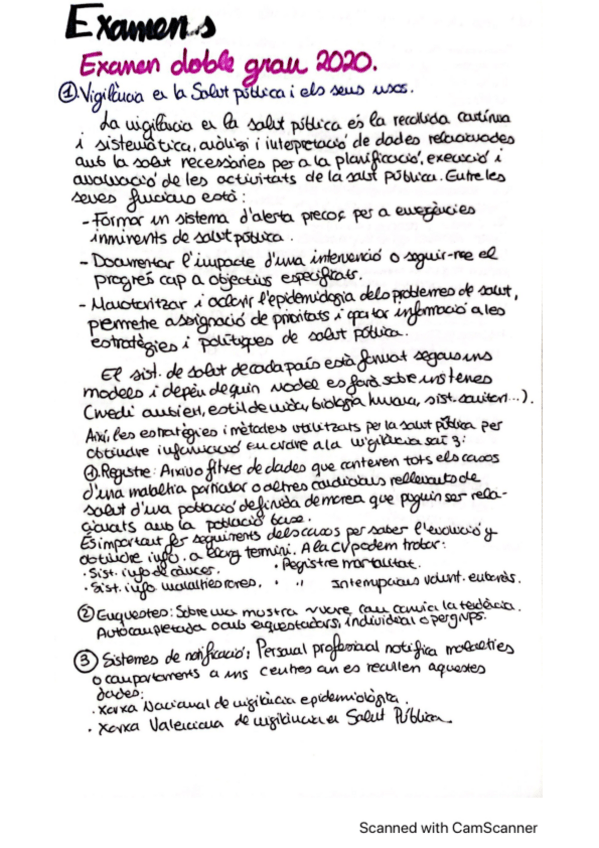 Examens
Examen doble grau 2020.
① Vigilància en la Salut pública i els seus usos.
La vigilància en la salut pública és la recollida contínua
i sistemàtica, anàlisi i interpretació de dades relacionades
amb la salut necessàries per a la planificació, execució i
avaluació de les activitats de la salut pública. Entre les
seves funcions està:
- Formar un sistema d'alerta precoç per a emergències
inminents de salut pública.
- Documentar l'impacte d'una intervenció o seguir-ne el
progrés cap a objectius especificats.
- Monotoritzar i aclarir l'epidemiologia dels problemes de salut,
permetre assignació de prioritats i aportar informació a les
estratègies i polítiques de salut pública.
El sist. de salut de cada país està format segons uns
models i depèn de quin model es farà sobre uns temes
(medi ambient, estil de vida, biologia humana, sist. sanitari...).
Així, les estratègies i mètodes utilitzats per la salut pública per
obtindre informació en cuant a la vigilància són 3:
① Registre: Arxiu o fitxer de dades que contenen tots els casos
d'una malaltia particular o altres condicions rellevants de
salut d'una població definida de manera que puguin ser rela-
cionats amb la població base.
És important fer seguiments dels casos per saber l'evolució y
obtindre info. a llarg termini. A la CV podem trobar:
· Sist. info de càncer. · Registre mortalitat.
· Sist. info malalties rares. · " Interrupcions volunt. embaràs.
② Enquestes: Sobre una mostra veure com canvia la tendència.
Autocompletada o amb enquestadors, individual o per grups.
③ Sistemes de notificació: Personal professional notifica malalties
o comportaments a uns centres on es recullen aquestes
dades:
· Xarxa Nacional de vigilància epidemiològica.
· Xarxa Valenciana de vigilància en Salut Pública.
Scanned with CamScanner